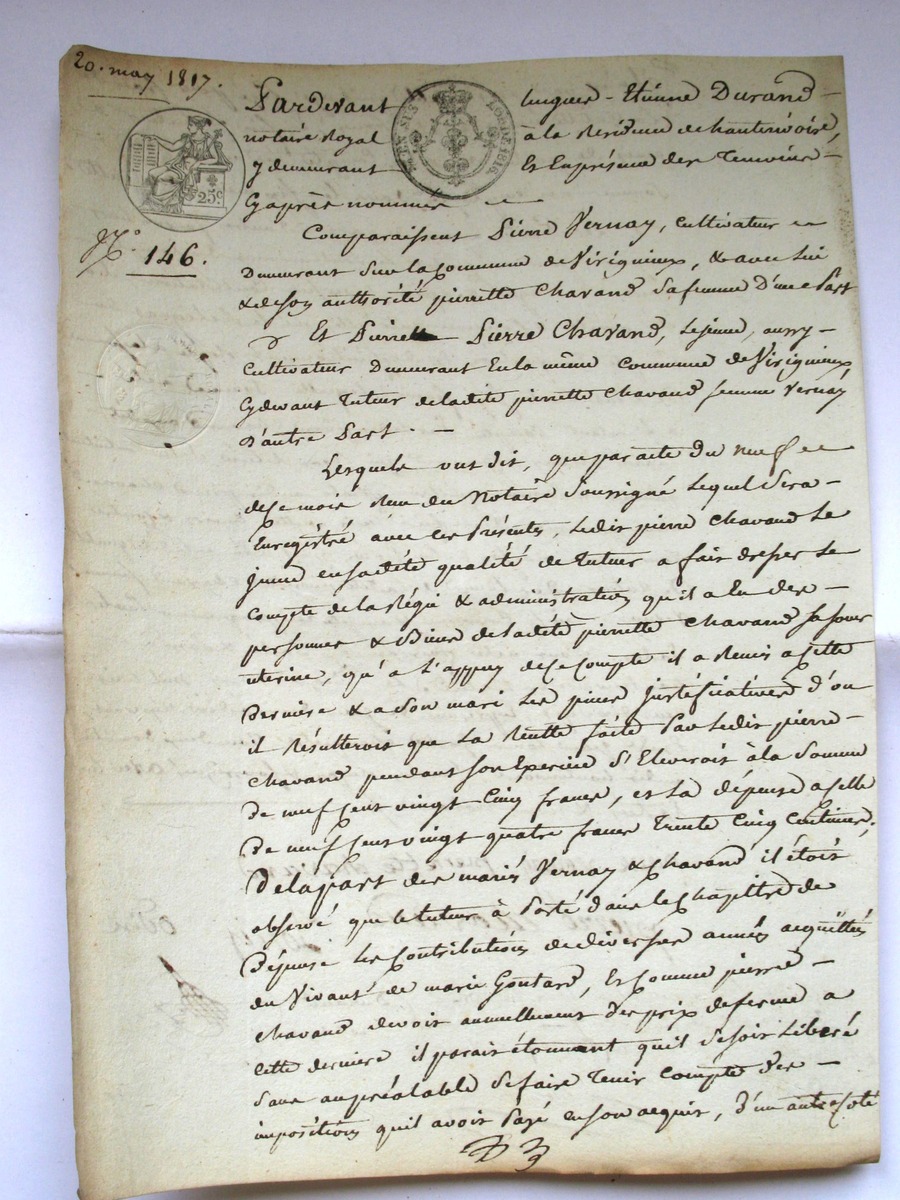 20. may 1817.
Pardevant hugues - Etienne Durand -
notaire Royal à la Résidence de hauterivoire,
y demeurant Et En présence des Temoins -
Cy après nommés
25c
TIMB. ROY. LOI DE 1816.
N.° 146.
Comparaissent Pierre Vernay, cultivateur
Demeurant Sur la Commune de Virigneux, & avec lui
& de son authorité pierrette Chavand sa femme d'une Part
Et Pierre Chavand, Le jeune, aussy -
Cultivateur Demeurant En la même Commune de Virigneux
Cy devant Tuteur de ladite pierrette Chavand femme Vernay,
D'autre Part. -
Lesquels ont dit, que par acte du neuf
de ce mois Reçu du Notaire Soussigné Lequel Sera -
Enregistré avec ces Présentes, Ledit pierre Chavand Le
jeune en sadite qualité de Tuteur a fait dresser Le
Compte de la Régie & administration qu'il a Eu des -
personnes & Biens de ladite pierrette Chavand sa soeur
uterine, qu'à L'appuy de Ce Compte il a Remis a Cette
Derniere & a Son mari Les pieces justificatives d'ou
il Résulteroit que La Recette faite Par Ledit pierre -
Chavand pendant Son Exercice S'Eleveroit à la Somme
De neuf Cent vingt Cinq francs, et La dépense a Celle
De neuf Cent vingt quatre francs Trente Cinq Centimes,
De la part des mariés Vernay & Chavand il étoit
observé que le tuteur à Porté dans le Chapitre de
Dépense Les Contributions de diverses années acquittées
du Vivant de marie Goutard, Et Comme pierre -
Chavand devoit annuellement des prix de ferme a
Cette derniere il parait étonnant qu'il Se soit Liberé
Sans au préalable Se faire Tenir Compte des -
impositions qu'il avoit Payé en Son acquit, D'un autre Coté